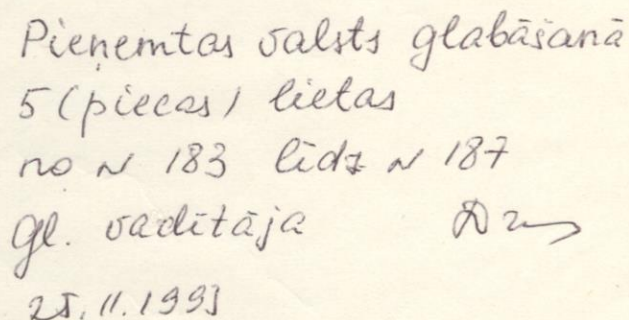 Pieņemtas valsts glabāšanā
5 (piecas) lietas
no N 183 līdz N 187
Gl. vadītāja
25.11.1993